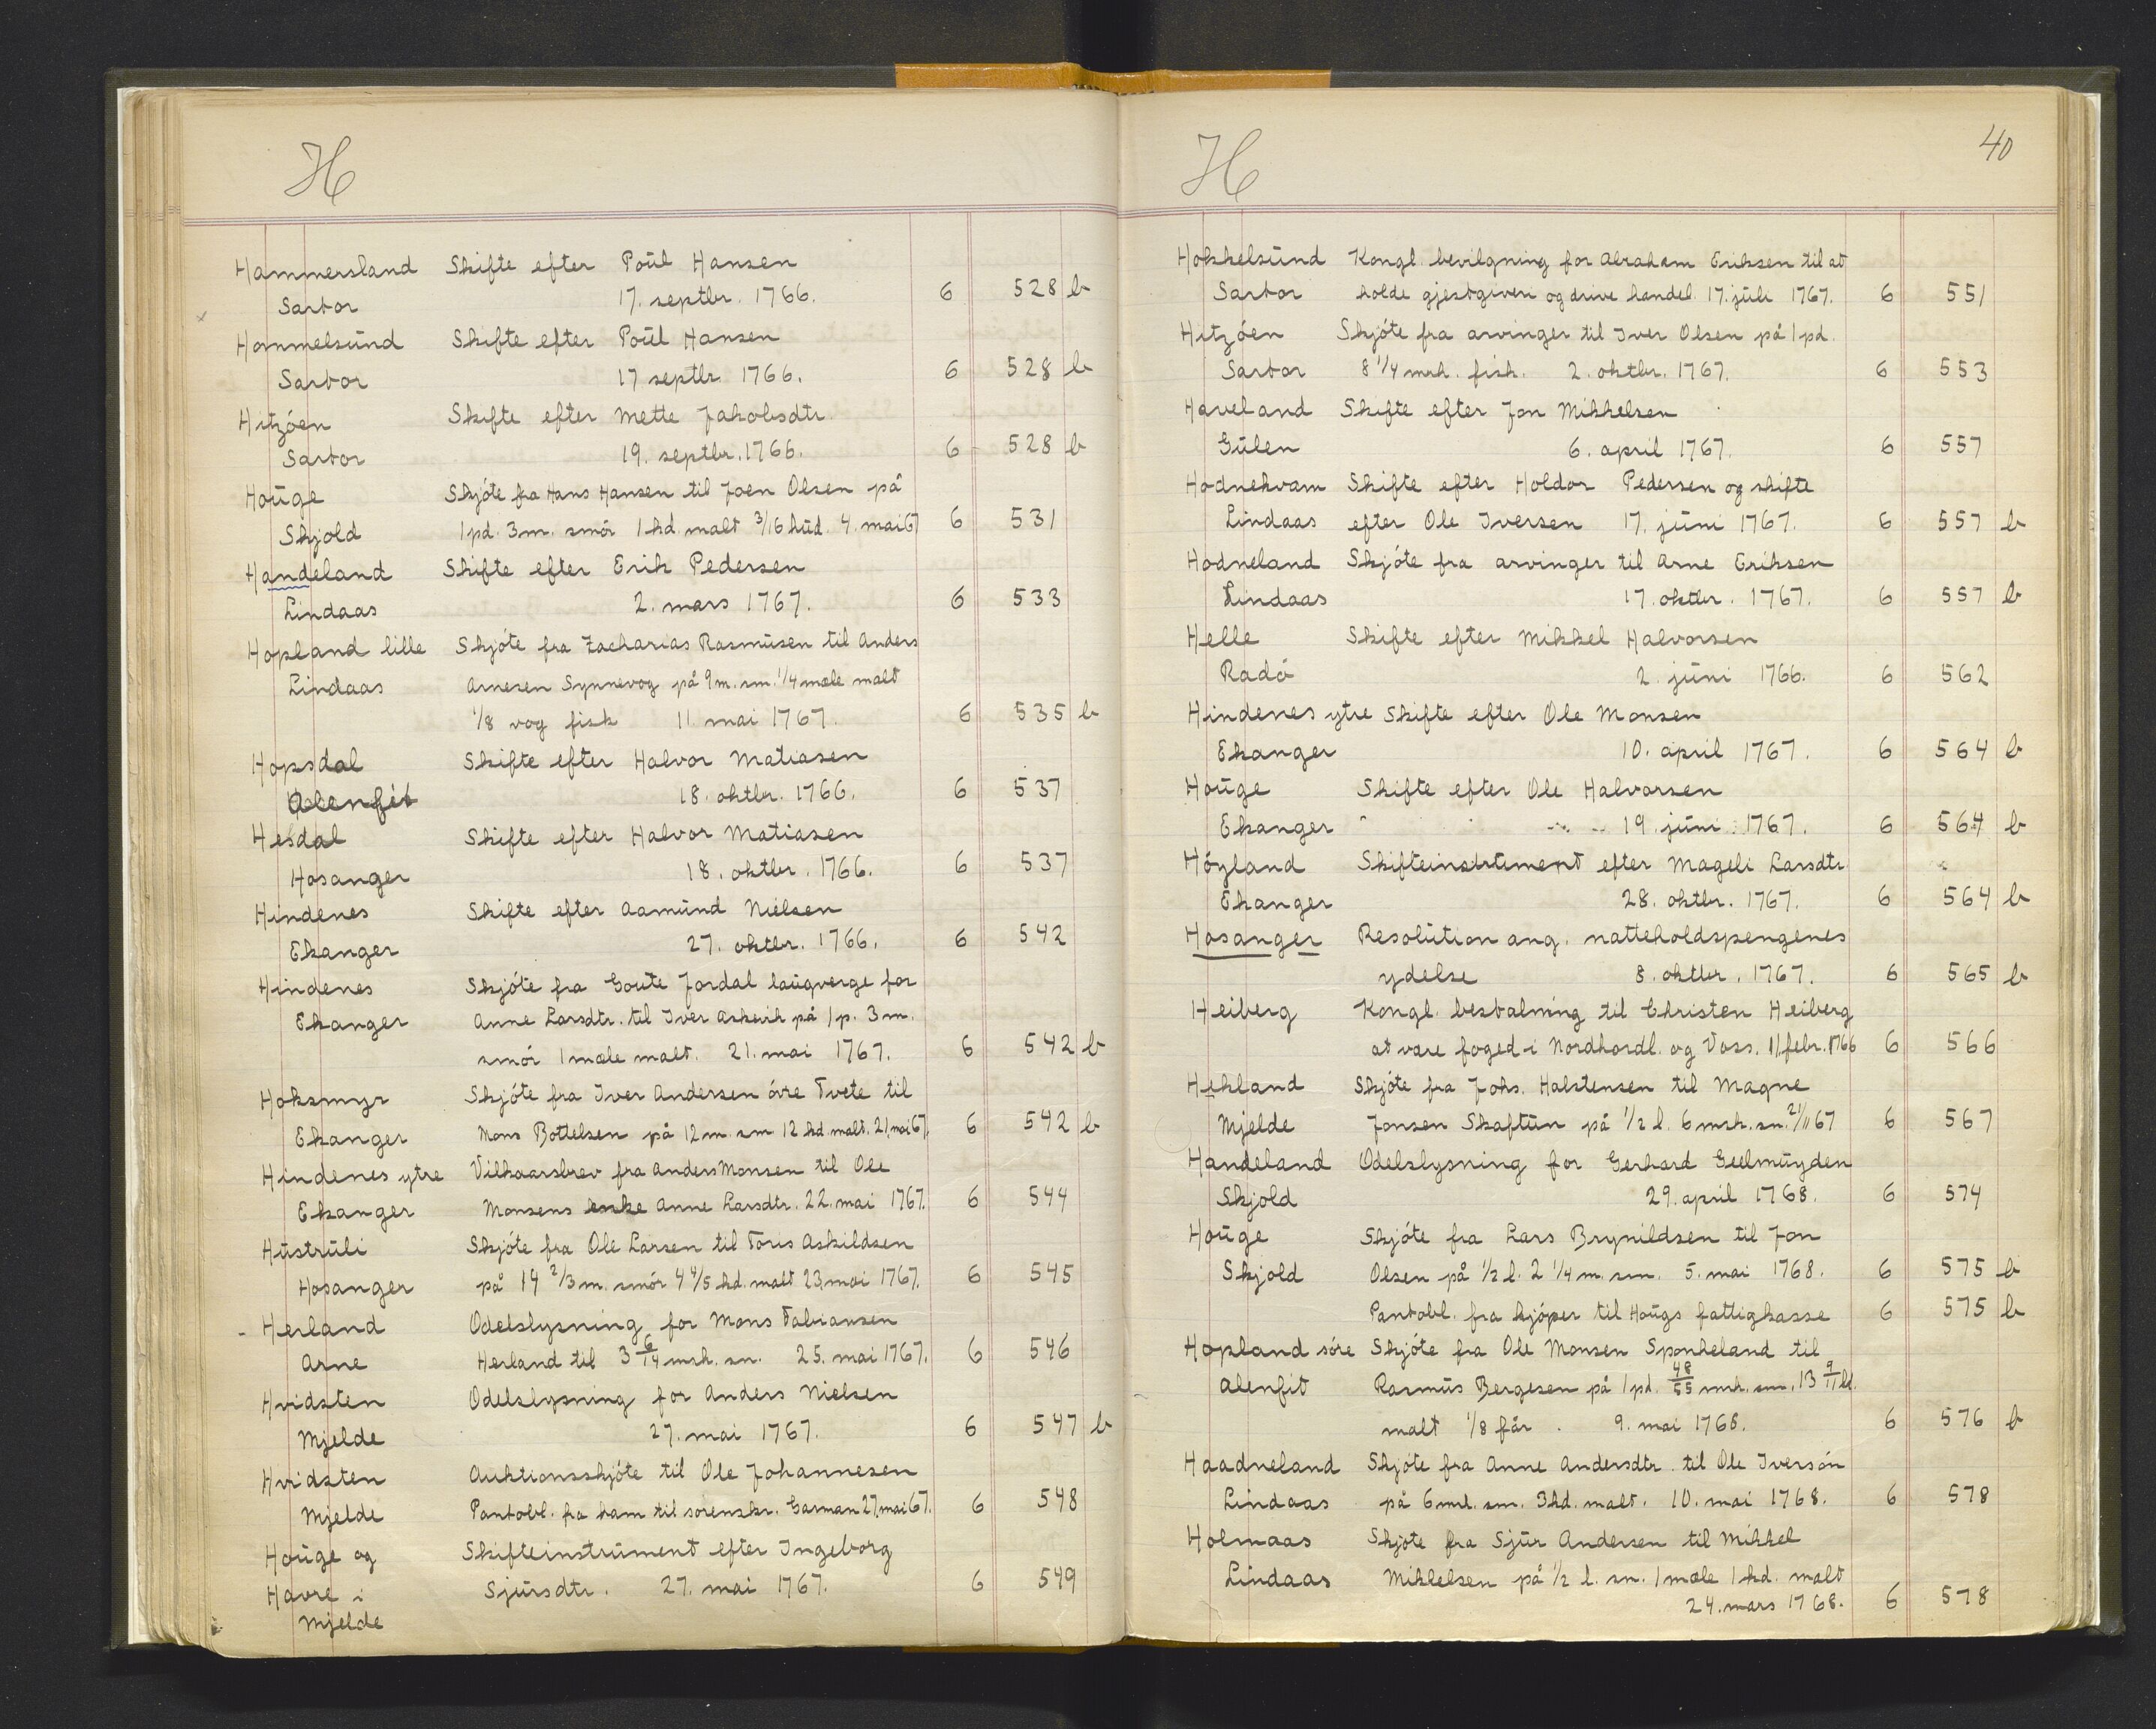 H
Hammersland Skifte efter Poul Hansen
Sartor 17. septbr. 1766. 6 528 b
Hommelsund Skifte efter Poul Hansen
Sartor 17 septbr. 1766. 6 528 b
Hitzöen Skifte efter Mette Jakobsdtr.
Sartor 19. septbr. 1766. 6 528 b
Houge Skjöte fra Hans Hansen til Joen Olsen på
Skjold 1 pd. 3 m. smör 1 hd. malt 3/16 hud. 4. mai 67 6 531
Handeland Skifte efter Erik Pedersen
Lindaas 2. mars 1767. 6 533
Hopland lille Skjöte fra Zacharias Rasmusen til Anders
Lindaas Arnesen Synnevog på 9 m. sm. 1/4 mæle malt
1/8 vog fisk 11 mai 1767. 6 535 b
Hopsdal Skifte efter Halvor Matiasen
Alenfit 18. oktbr. 1766. 6 537
Hesdal Skifte efter Halvor Matiasen
Hosanger 18. oktbr. 1766. 6 537
Hindenes Skifte efter Aamund Nielsen
Ekanger 27. oktbr. 1766. 6 542
Hindenes Skjöte fra Goute Jordal laugverge for
Ekanger Anne Larsdtr. til Iver Askvik på 1 p. 3 m.
smör 1 mæle malt. 21. mai 1767. 6 542 b
Hoksmyr Skjöte fra Iver Andersen övre Tvete til
Ekanger Mons Bottelsen på 12 m. sm 12 hd. malt. 21. mai 67. 6 542 b
Hindenes ytre Vilkaarsbrev fra Anders Monsen til Ole
Ekanger Monsens enke Anne Larsdtr. 22. mai 1767. 6 544
Hustruli Skjöte fra Ole Larsen til Toris Askildsen
Hosanger på 14 2/3 m. smör 4 4/5 hd. malt 23. mai 1767. 6 545
Herland Odelslysning for Mons Fabiansen
Arne Herland til 3 6/14 mrk. sm. 25. mai 1767. 6 546
Hvidsten Odelslysning for Anders Nielsen
Mjelde 27. mai 1767. 6 547 b
Hvidsten Auktionsskjöte til Ole Johannesen
Mjelde Pantobl. fra ham til sorenskr. Garman 27. mai 67. 6 548
Houge og Skifteinstrument efter Ingeborg
Havre i Sjursdtr. 27. mai 1767. 6 549
Mjelde
H 40
Hokkelsund Kongl. bevilgning for Abraham Eriksen til at
Sartor holde gjestgiveri og drive handel. 17. juli 1767. 6 551
Hitzöen Skjöte fra arvinger til Iver Olsen på 1 pd.
Sartor 8 1/4 mrk. fisk. 2. oktbr. 1767. 6 553
Haveland Skifte efter Jon Mikkelsen
Gulen 6. april 1767. 6 557
Hodnekvam Skifte efter Holdor Pedersen og skifte
Lindaas efter Ole Iversen 17. juni 1767. 6 557 b
Hodneland Skjöte fra arvinger til Arne Eriksen
Lindaas 17. oktbr. 1767. 6 557 b
Helle Skifte efter Mikkel Halvorsen
Radö 2. juni 1766. 6 562
Hindenes ytre Skifte efter Ole Monsen
Ekanger 10. april 1767. 6 564 b
Houge Skifte efter Ole Halvorsen
Ekanger 19. juni 1767. 6 564 b
Höyland Skifteinstrtiment efter Mageli Larsdtr
Ekanger 28. oktbr. 1767. 6 564 b
Hosanger Resolution ang. natteholdspengenes
ydelse 8. oktbr. 1767. 6 565 b
Heiberg Kongl. bestalning til Christen Heiberg
at være foged i Nordhordl. og Voss. 11. febr. 1766 6 566
Hekland Skjöte fra Johs. Halstensen til Magne
Mjelde Jonsen Skaftun på 1/2 l. 6 mrk. sm. 21/11 67 6 567
Handeland Odelslysning for Gerhard Geelmuyden
Skjold 29. april 1768. 6 574
Houge Skjöte fra Lars Brynildsen til Jon
Skjold Olsen på 1/2 l. 2 1/4 m. sm. 5. mai 1768. 6 575 b
Pantobl. fra kjöper til Hougs fattigkasse 6 575 b
Hopland söre Skjöte fra Ole Monsen Sponheland til
Alenfit Rasmus Bergesen på 1 pd. 48/55 mrk. sm. 13 9/11 hd.
malt 1/8 får. 9. mai 1768. 6 576 b
Haadneland Skjöte fra Anne Andersdtr. til Ole Iversön
Lindaas på 6 mrk. sm. 3 hd. malt. 10. mai 1768. 6 578
Holmaas Skjöte fra Sjur Andersen til Mikkel
Lindaas Mikkelsen på 1/2 l. sm. 1 mæle 1 hd. malt
24. mars 1768. 6 578